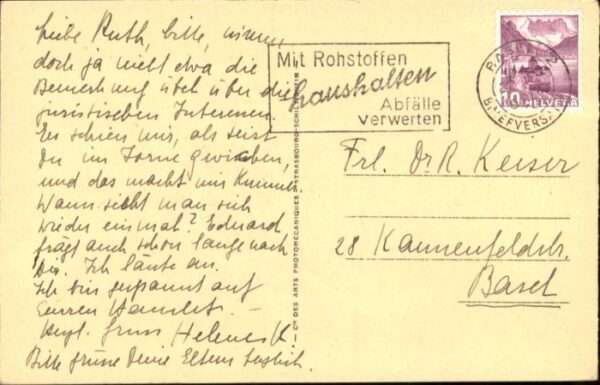 Liebe Ruth, bitte, nimm
doch ja nicht etwa die
Bemerkung übel über die
juristischen Interessen.
Es schien mir, als seist
Du im Zorne gewichen,
und das macht mir Kummer.
Wann sieht man sich
wieder einmal? Eduard
frägt auch schon lange nach
Dir. Ich läute an.
Ich bin gespannt auf
Euren Hamlet.
Herzl. Gruss Helene K.
Bitte grüsse Deine Eltern herzlich.
Mit Rohstoffen
haushalten
Abfälle
verwerten
BRIEFVERSAND
10 HELVETIA
Cie DES ARTS PHOTOMECANIQUES STRASBOURG-SCHILTIGHEIM
Frl. Dr R. Keiser
28 Kannenfeldstr.
Basel